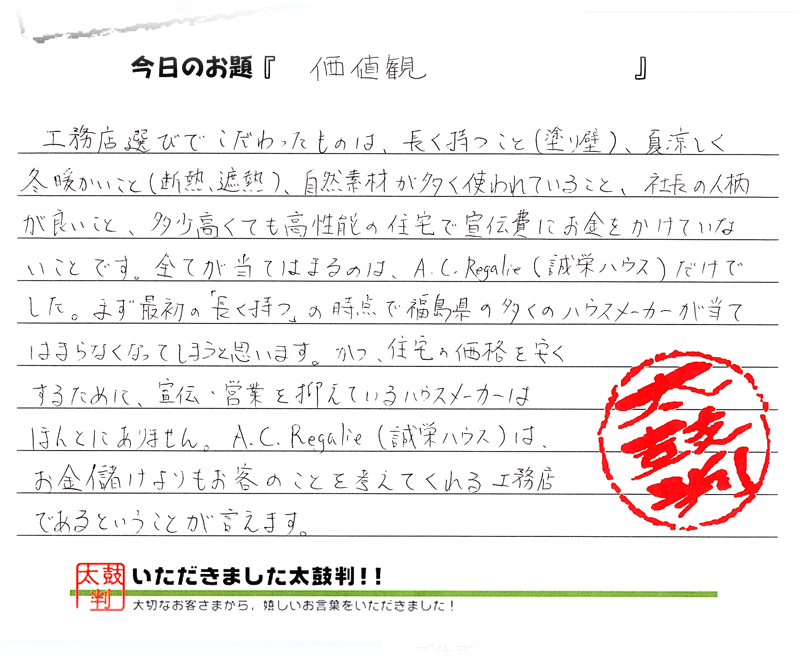 今日のお題『 価値観 』
工務店選びでこだわったものは、長く持つこと(塗り壁)、夏涼しく
冬暖かいこと(断熱、遮熱)、自然素材が多く使われていること、社長の人柄
が良いこと、多少高くても高性能の住宅で宣伝費にお金をかけていな
いことです。全てが当てはまるのは、A.C.Regalie(誠栄ハウス)だけで
した。まず最初の「長く持つ」の時点で福島県の多くのハウスメーカーが当て
はまらなくなってしまうと思います。かつ、住宅の価格を安く
するために、宣伝・営業を抑えているハウスメーカーは
ほんとにありません。A.C.Regalie(誠栄ハウス)は、
お金儲けよりもお客のことを考えてくれる工務店
であるということが言えます。
太鼓判
太鼓判
いただきました太鼓判!!
大切なお客さまから,嬉しいお言葉をいただきました!